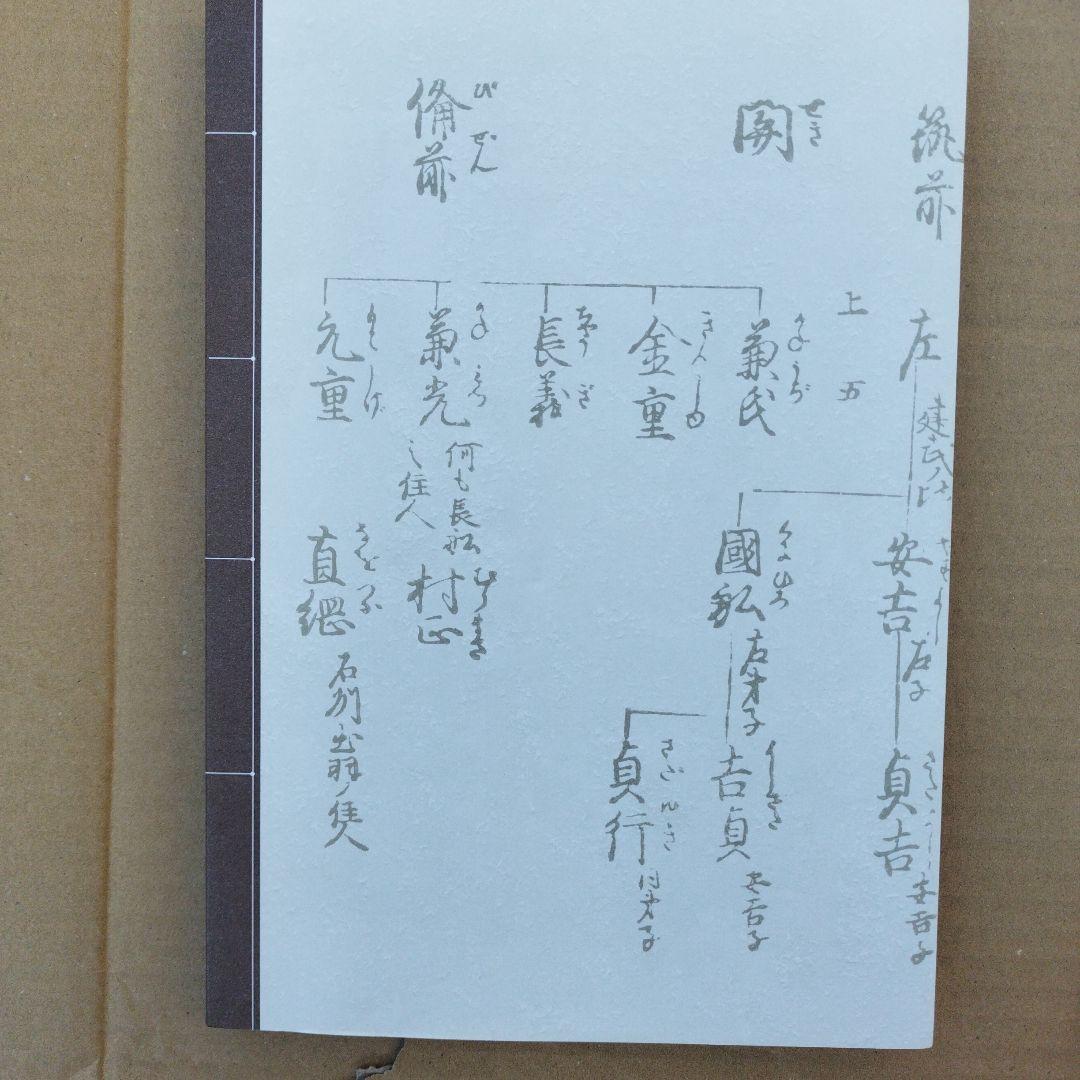 筑前
左
建武ノ比
安吉
左子
貞吉
安吉子
上
五
國弘
左才子
吉貞
よしさだ
安吉子
貞行
さだゆき
関
せき
兼氏
かねうぢ
金重
きんしげ
長義
ちやうぎ
備前
びぜん
兼光
かねみつ
何も長船
之住人
村正
むらまさ
元重
もとしげ
直綱
なをつな
石列出羽ノ住人